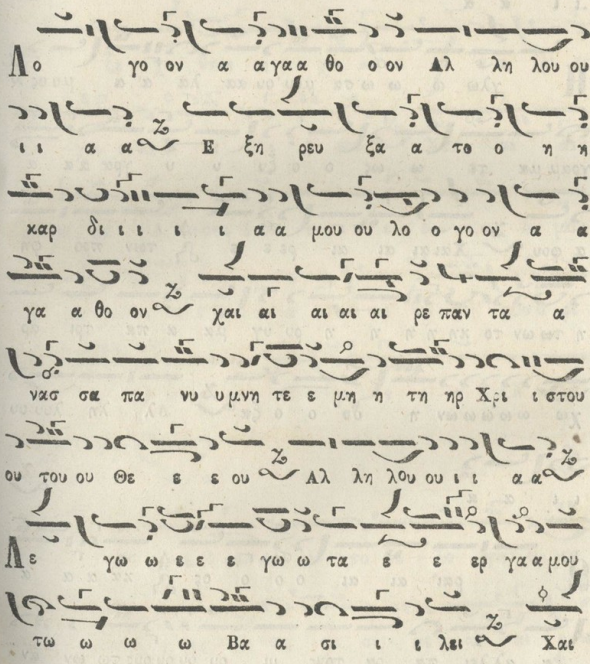 Λο γο ον α α γα α θο ο ον Αλ λη λου ου
ι ι α α Ε ξη ρευ ξα α το ο η η
καρ δι ι ι ι ι α α μου ου λο ο γο ον α α
γα α θο ον χαι αι αι αι αι ρε παν τα α
νασ σα πα νυ υ μνη τε ε μη η τη ηρ Χρι ι στου
ου του ου Θε ε ε ου Αλ λη λου ου ι ι α α
Λε γω ω ε ε ε γω ω τα ε ε ερ γα α μου
τω ω ω ω Βα α σι ι ι λει Χαι